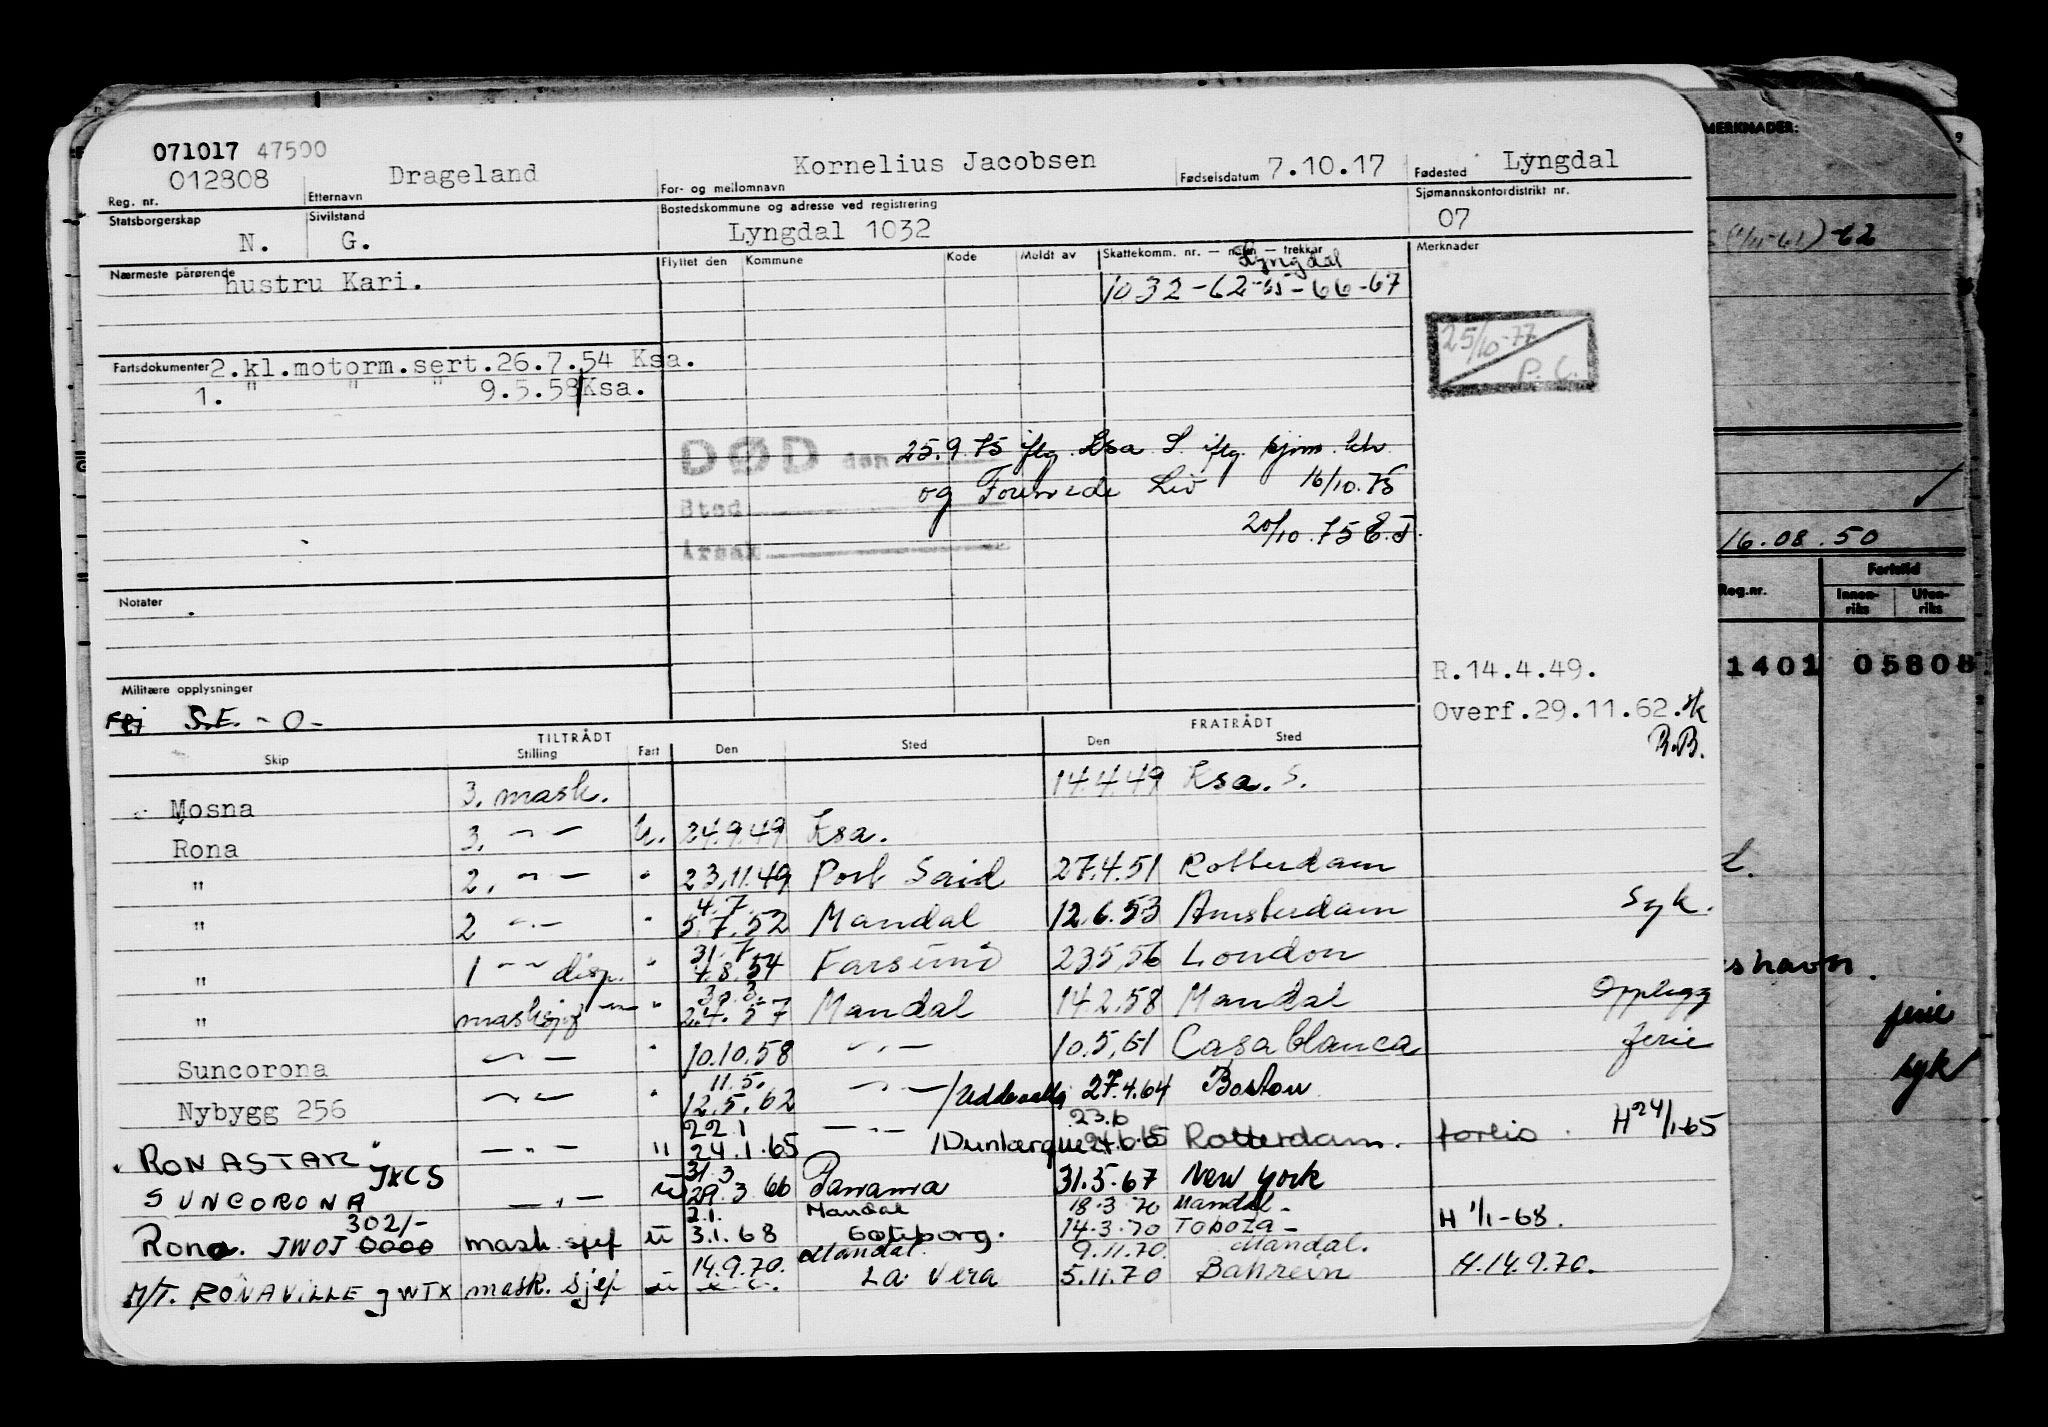 071017 47500
012808 Drageland Kornelius Jacobsen 7.10.17 Lyngdal
Reg. nr. Etternavn For- og mellomnavn Fødselsdatum Fødested
Statsborgerskap Sivilstand Bostedskommune og adresse ved registrering Sjømannskontordistrikt nr.
N. G. Lyngdal 1032 07
Nærmeste pårørende Flyttet den Kommune Kode Meldt av Skattekomm. nr. — navn — trekkår Merknader
hustru Kari. Lyngdal
1032-62-65-66-67
25/10-77
P. C.
Fartsdokumenter 2.kl.motorm.sert.26.7.54 Ksa.
1. " " " 9.5.58 Ksa.
DØD den 25.9.75 iflg. Ksa S. iflg. sjøm. ktr.
og Livº 16/10.75
Sted
20/10.75 E.J.
Årsak
Notater
R.14.4.49.
Militære opplysninger
S.E. -0-
Overf.29.11.62.
R.B.
TILTRÅDT FRATRÅDT
Skip Stilling Fart Den Sted Den Sted
Mosna 3. mask. 14.4.49 Ksa. S.
Rona 3. -"- U. 24.9.49 Ksa.
" 2. -"- " 23.11.49 Port Said 27.4.51 Rotterdam
4.7.
" 2 -"- " 5.7.52 Mandal 12.6.53 Amsterdam Syk.
31.7
" 1 -"- disp. " 4.8.54 Farsund 23.5.56 London
30.3.
" masksjef -"- " 2.4.57 Mandal 14.2.58 Mandal Opplegg
Suncorona -"- " 10.10.58 -"- 10.5.61 Casablanca ferie
11.5.
Nybygg 256 -"- " 12.5.62 -"- /Uddevalla 27.4.64 Boston
22.1 23.6
"RONASTAR" JXCS -"- " 24.1.65 -"- /Dunkerque 24.6.65 Rotterdam. H 24/1-65
31.3
SUNCORONA -"- u 29.3.66 Panama 31.5.67 New York
302/- 2.1. Mandal 18.3.70 Mandal-
Rona. JWOJ 0000 mask sjef u 3.1.68 Göteborg. 14.3.70 H 1/1-68.
14.9.70. Mandal 9.11.70. Mandal.
M/T. RONAVILLE JWTX mask. sjef u La Vera 5.11.70 Bahrein H.14.9.70.
MERKNADER:
-62
16.08.50
Reg.nr. Fartstid
Innenriks Utenriks
1401 05808
shavn.
ferie
syk